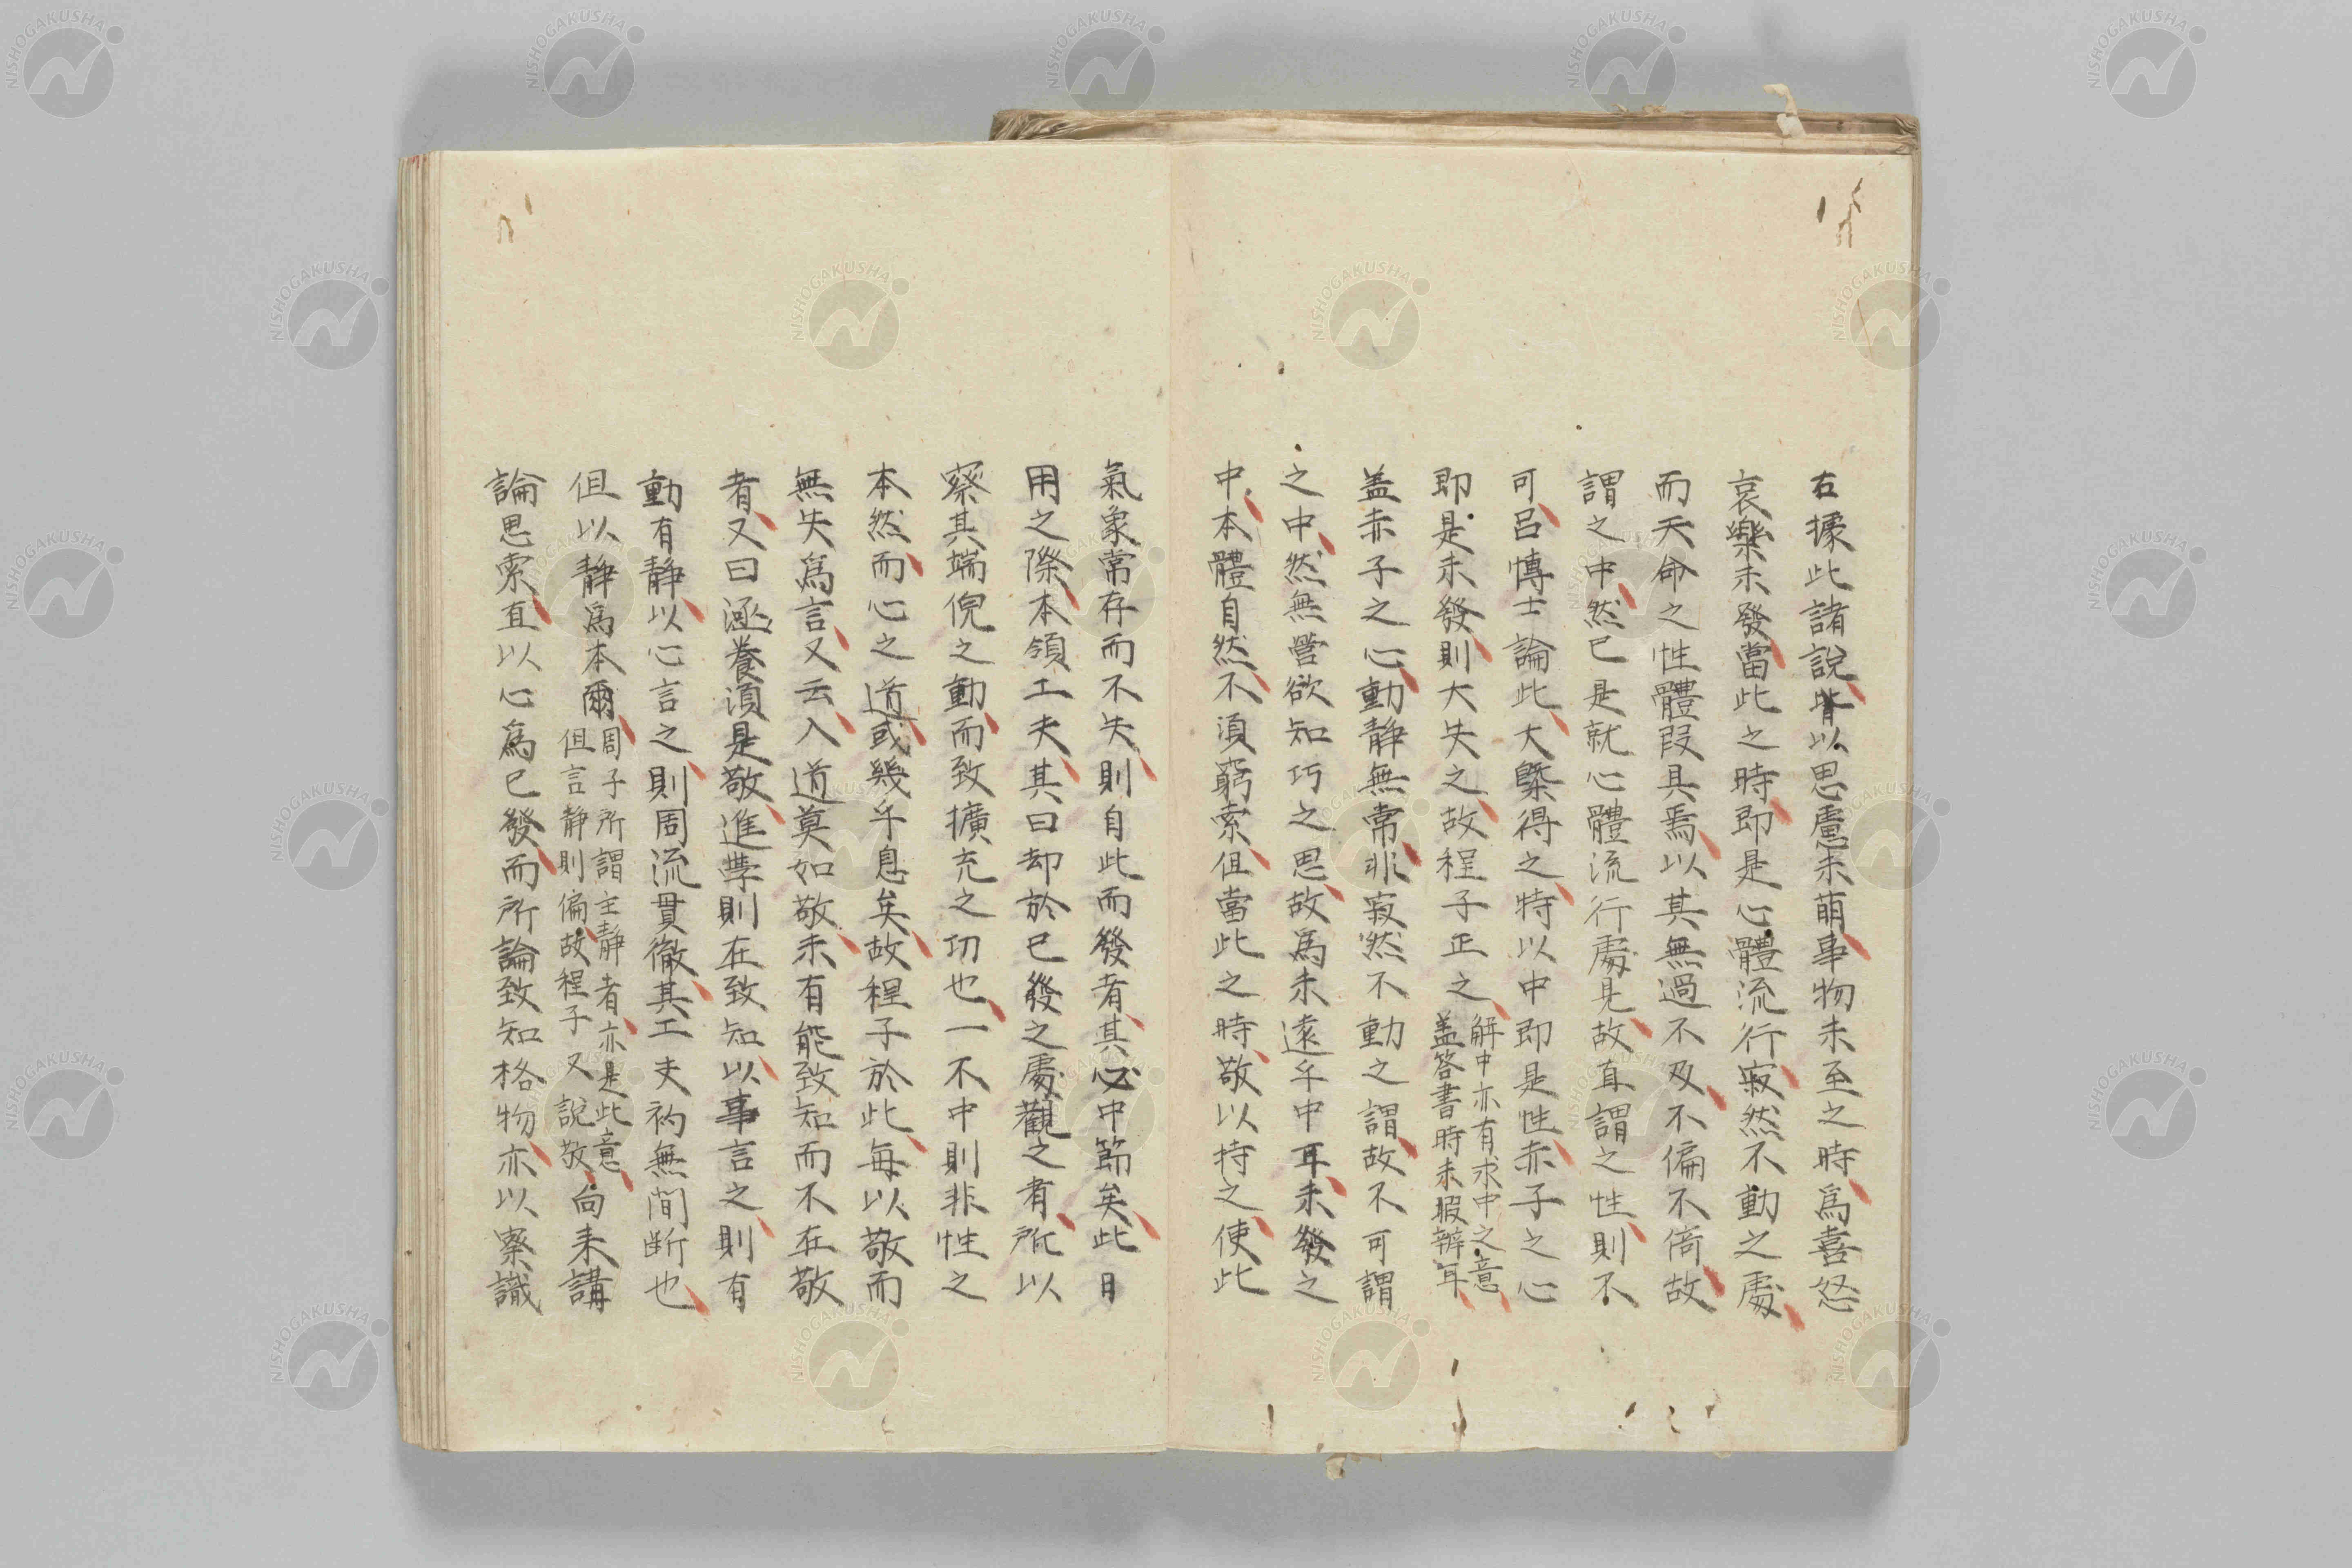 右據此諸說皆以思慮未萌事物未至之時爲喜怒
哀樂未發當此之時即是心體流行寂然不動之處
而天命之性體段具焉以其無過不及不偏不倚故
謂之中然已是就心體流行處見故直謂之性則不
可呂博士論此大槩得之特以中即是性赤子之心
即是未發則大失之故程子正之
解中亦有求中之意
盖答書時未暇辨耳
盖赤子之心動静無常非寂然不動之謂故不可謂
之中然無營欲知巧之思故爲未遠乎中耳未發之
中本體自然不須窮索但當此之時敬以持之使此
氣象常存而不失則自此而發者其必中節矣此日
用之際本領工夫其曰却於已發之處觀之者所以
察其端倪之動而致擴充之功也一不中則非性之
本然而心之道或幾乎息矣故程子於此每以敬而
無失爲言又云入道莫如敬未有能致知而不在敬
者又曰涵養須是敬進學則在致知以事言之則有
動有静以心言之則周流貫徹其工夫初無間断也
但以静爲本爾
周子所謂主静者亦是此意
但言静則偏故程子又說敬
向来講
論思索直以心爲已發而所論致知格物亦以察識
NISHOGAKUSHA